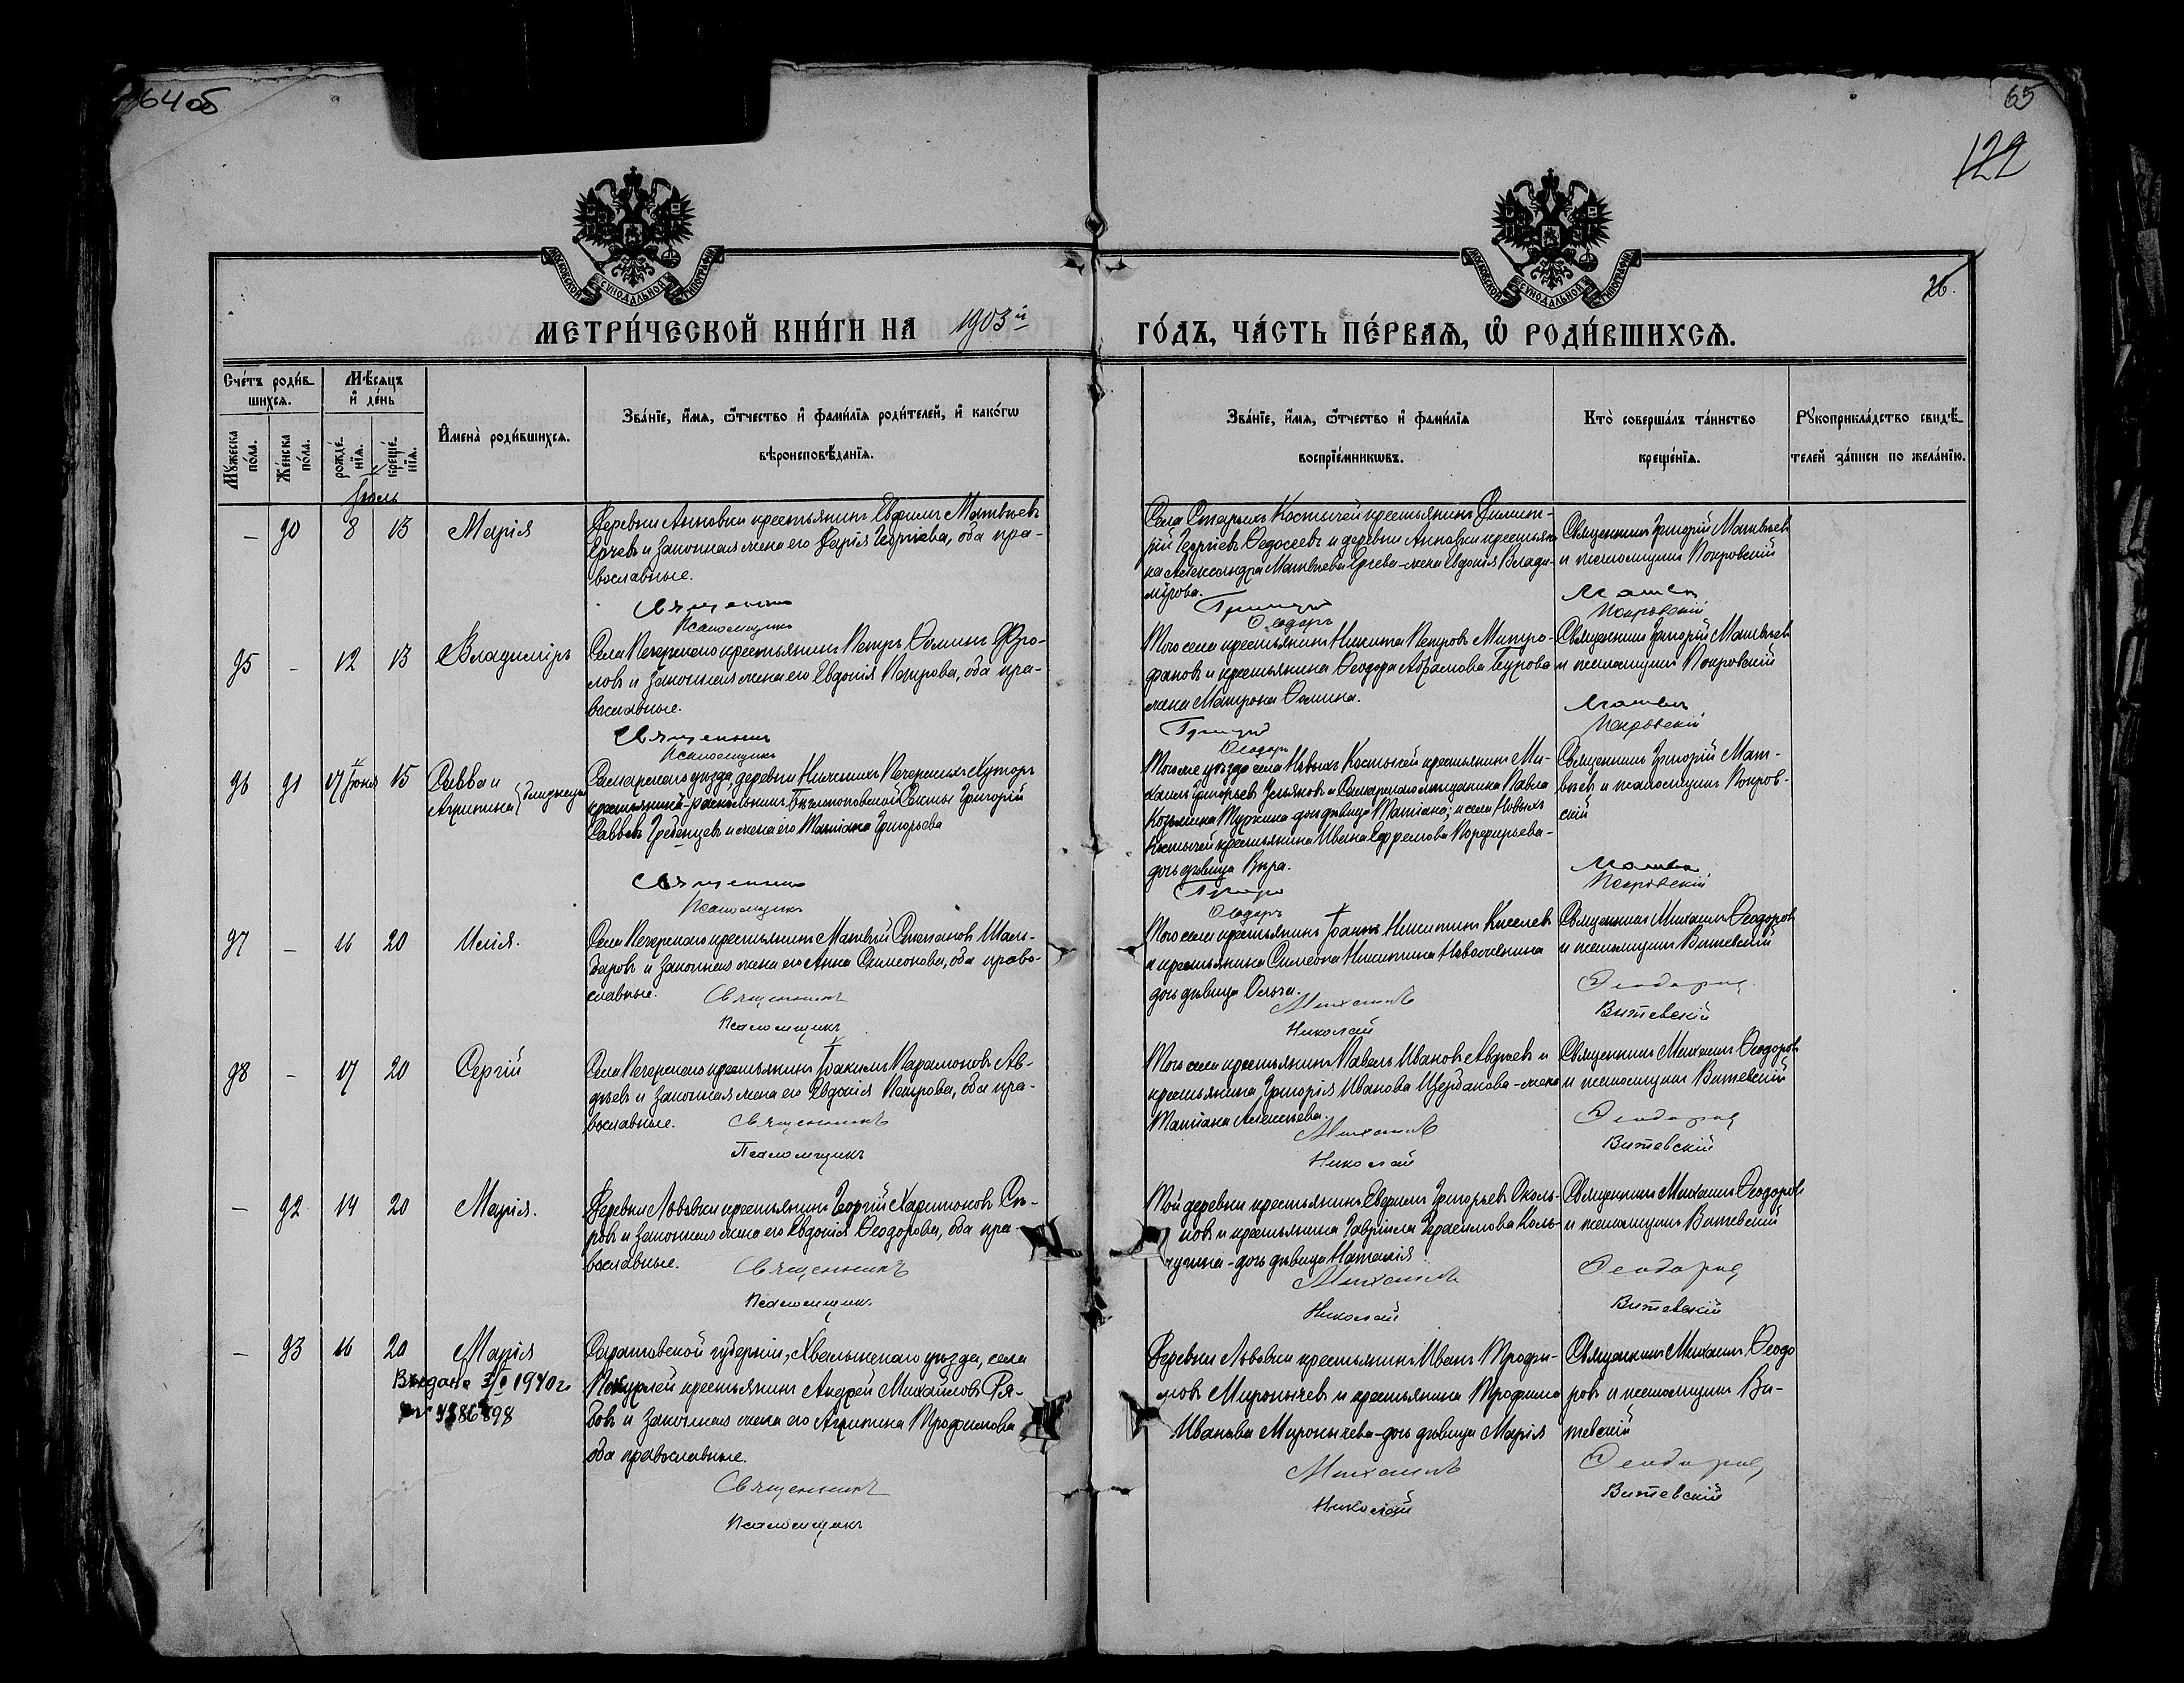 64 об
65
122
26.
МОСКОВСКОЙ СѴНОДАЛЬНОЙ ТИПОГРАФІИ
МОСКОВСКОЙ СѴНОДАЛЬНОЙ ТИПОГРАФІИ
МЕТРИ́ЧЕСКОЙ КНИ́ГИ НА 1903й
ГО́ДЪ, ЧА́СТЬ ПЕ́РВАѦ, Ѡ РОДИ́ВШИХСѦ.
Сче́тъ роди́в-
шихсѧ.
Мѣ́сѧцъ
и҆ де́нь
Мꙋ́жеска
по́ла.
Же́нска
по́ла.
рожде́-
нїѧ.
креще́-
нїѧ.
И҆мена̀ роди́вшихсѧ.
Зва́нїе, и҆́мѧ, ѻ҆́тчество и҆ фами́лїѧ роди́телей, и҆ како́гѡ
вѣроисповѣ́данїѧ.
Зва́нїе, и҆́мѧ, ѻ҆́тчество и҆ фами́лїѧ
воспрїе́мникѡвъ.
Кто̀ соверша́лъ та́инство
креще́нїѧ.
Рꙋкоприкла́дство свидѣ́-
телей за́писи по жела́нїю.
Іюль
– 90 8 13 Марія
Деревни Анновки крестьянинъ Евфимъ Матвѣевъ
Ергаевъ и законная жена его Дарія Георгіева, оба пра-
вославные.
Священникъ
Псаломщикъ
Села Старыхъ Костычей крестьянинъ Димит-
рій Георгіевъ Ѳедосеевъ и деревни Анновки крестьяни-
на Александра Матвѣева Ергаева - жена Евдокія Влади-
мірова.
Григорій
Ѳеодоръ
Священникъ Григорій Матвѣевъ
и псаломщикъ Покровскій
Матвѣевъ
Покровскій
95 – 12 13 Владиміръ
Села Печерскаго крестьянинъ Петръ Ѳоминъ Фро-
ловъ и законная жена его Евдокія Петрова, оба пра-
вославные.
Священникъ
Псаломщикъ
Того села крестьянинъ Никита Петровъ Митро-
фановъ и крестьянина Ѳеодора Абрамова Бурова
жена Матрона Ѳомина.
Григорій
Ѳеодоръ
Священникъ Григорій Матвѣевъ
и псаломщикъ Покровскій
Матвѣевъ
Покровскій
96 91 17 Іюня 15 Савва и
Агрипина } близнецы
Самарскаго уѣзда деревни Нижнихъ Печерскихъ Хуторъ
крестьянинъ - раскольникъ Безпоповской Секты Григорій
Саввевъ Гребенцевъ и жена его Татіана Григорьева
Священникъ
Псаломщикъ
Того же уѣзда села Новыхъ Костычей крестьянинъ Ми-
хаилъ Григорьевъ и Самарскаго мѣщанина Павла
Козьмина дочь дѣвица Татіана; и села Новыхъ
Костычей крестьянина Ивана Ефремова Порфирьева -
дочь дѣвица Вѣра.
Григорій
Ѳеодоръ
Священникъ Григорій Мат-
вѣевъ и псаломщикъ Покров-
скій
Матвѣевъ
Покровскій
97 – 16 20 Илія.
Села Печерскаго крестьянинъ Матвѣй Степановъ Шам-
баровъ и законная жена его Анна Симеонова, оба право-
славные.
Священникъ
Псаломщикъ
Того села крестьянинъ Іоаннъ Никитинъ Киселевъ
и крестьянина Симеона Никитина Новоженина
дочь дѣвица Ольга.
Михаилъ
Николай
Священникъ Михаилъ Ѳеодоровъ
и псаломщикъ Витевскій
Ѳеодоровъ
Витевскій
98 – 17 20 Сергій
Села Печерскаго крестьянинъ Іоакимъ Парамоновъ Ав-
дѣевъ и законная жена его Евдокія Петрова, оба пра-
вославные.
Священникъ
Псаломщикъ
Того села крестьянинъ Павелъ Ивановъ Авдѣевъ и
крестьянина Григорія Иванова Щербакова - жена
Татіана Алексѣева.
Михаилъ
Николай
Священникъ Михаилъ Ѳеодоровъ
и псаломщикъ Витевскій
Ѳеодоровъ
Витевскій
– 92 14 20 Марія.
Деревни Львовки крестьянинъ Георгій Харитоновъ Сы-
ровъ и законная жена его Евдокія Ѳеодорова, оба пра-
вославные.
Священникъ
Псаломщикъ
Той деревни крестьянинъ Евфимъ Григорьевъ Околь-
новъ и крестьянина Гавріила Герасимова Коль-
чугина - дочь дѣвица Наталія
Михаилъ
Николай
Священникъ Михаилъ Ѳеодоровъ
и псаломщикъ Витевскій
Ѳеодоровъ
Витевскій
– 93 16 20 Марія
Выдана 3/I 1940 г.
№ 4886898
Саратовской губерніи, Хвалынскаго уѣзда, села
Покурлей крестьянинъ Андрей Михайловъ Ря-
бовъ и законная жена его Агрипина Трофимова
оба православные.
Священникъ
Псаломщикъ
Деревни Львовки крестьянинъ Иванъ Трофи-
мовъ Миронычевъ и крестьянина Трофима
Иванова Миронычева - дочь дѣвица Марія
Михаилъ
Николай
Священникъ Михаилъ Ѳеодо
ровъ и псаломщикъ Ви-
тевскій
Ѳеодоровъ
Витевскій